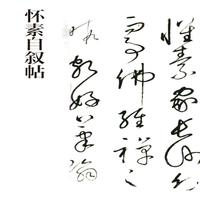 懷素家長沙幼而
事佛經禪之
暇頗好筆翰
怀素自叙帖